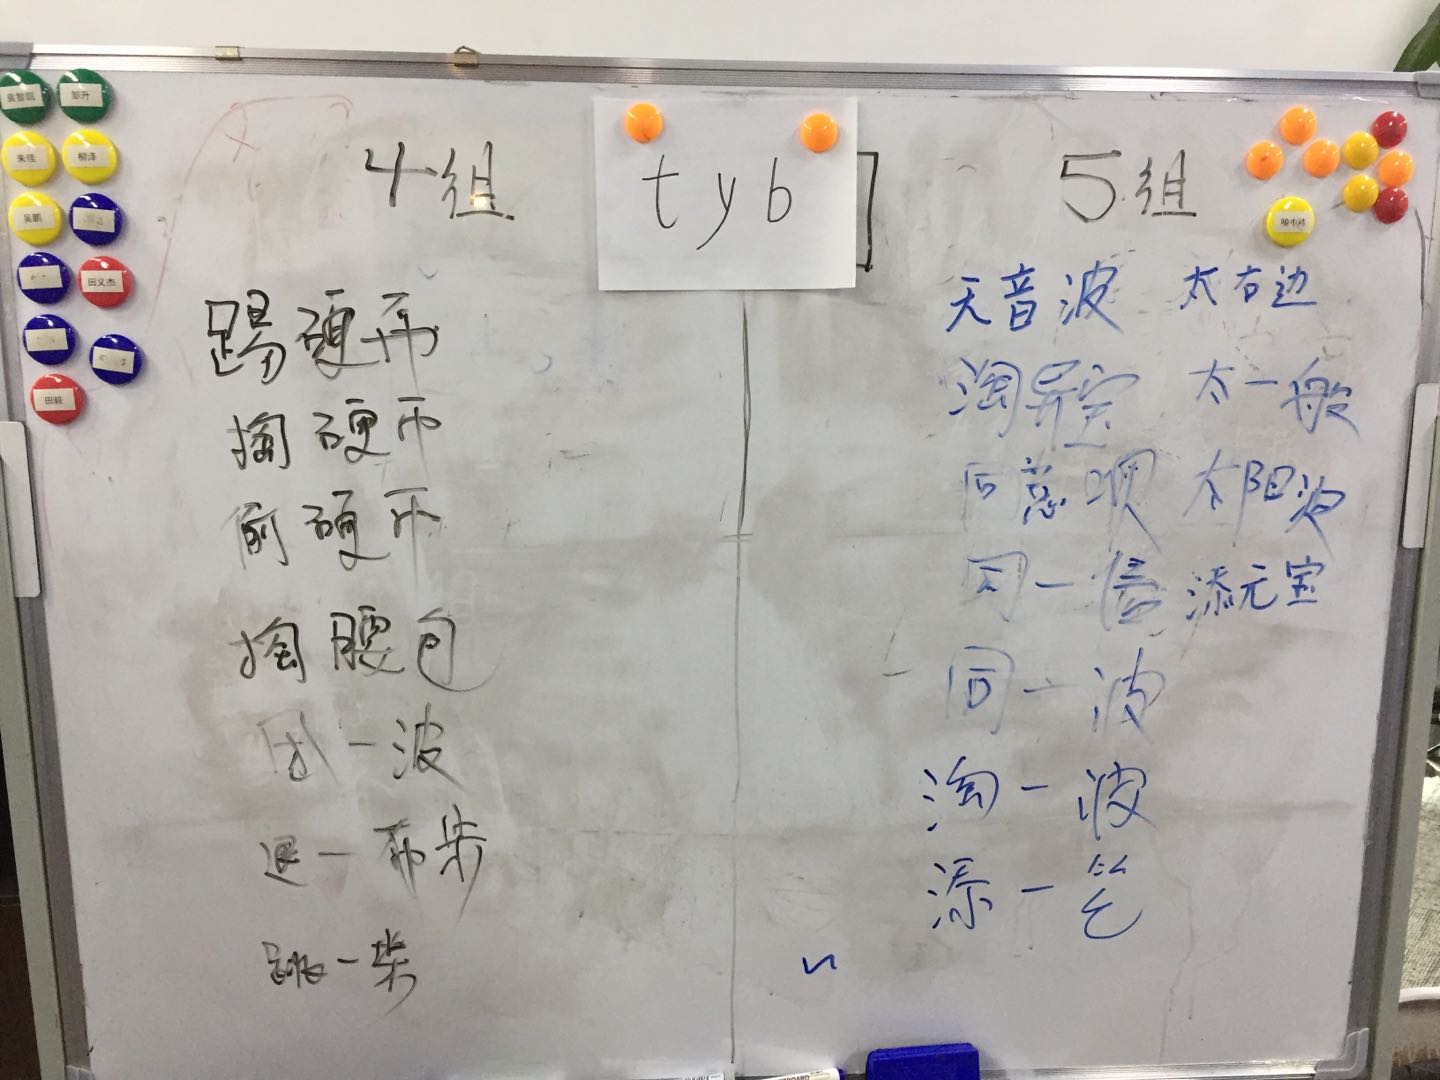 4组
tyb
5组
踢硬币
掏硬币
偷硬币
掏腰包
团一波
退一步
跳一步
天音波
淘异宝
同意呗
同一信
同一波
淘一波
添一笔
太右边
太一般
太阳波
添元宝
袁智凯
邹升
朱佳
柳泽
吴鹏
田义杰
田毅